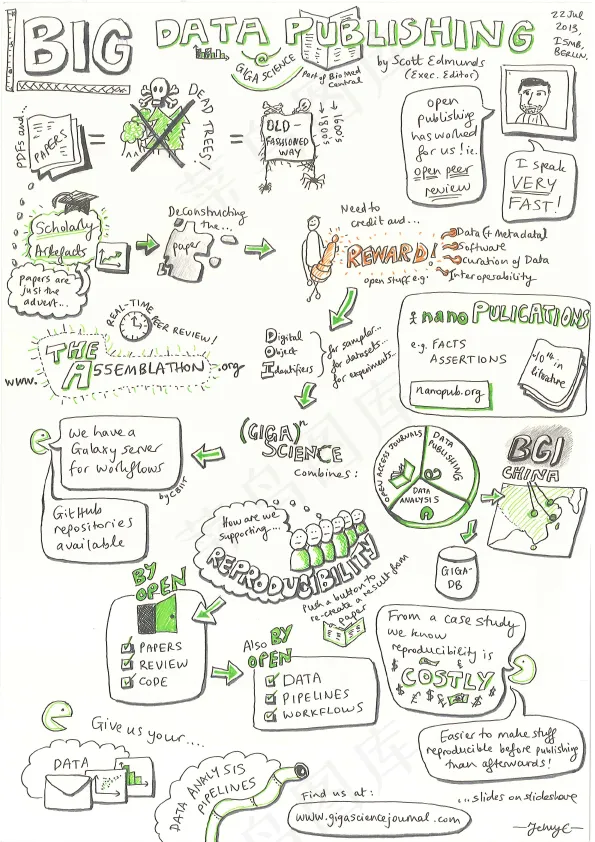 BIG DATA PUBLISHING
22 Jul
2013,
ISMB,
BERLIN.
@
GIGA SCIENCE
part of BioMed
Central
by Scott Edmunds
(Exec. Editor)
PDFs and...
PAPERS
=
DEAD TREES!
=
OLD-
FASHIONED
WAY
1600s
1800s
open
publishing
has worked
for us! ie.
open peer
review
I speak
VERY
FAST!
Scholarly
Artefacts
papers are
just the
advert...
Deconstructing
the...
paper
Need to
credit and...
REWARD!
open stuff e.g.
Data (+ Metadata)
Software
Curation of Data
Interoperability
REAL-TIME
PEER REVIEW!
www.
THE
ASSEMBLATHON
.org
Digital
Object
Identifiers
for samples...
for datasets...
for experiments...
nano PULICATIONS
e.g. FACTS
ASSERTIONS
nanopub.org
literature
we have a
Galaxy server
for workflows
by CBIIT
GitHub
repositories
available
(GIGA)ⁿ
SCIENCE
combines:
OPEN ACCESS JOURNALS
DATA PUBLISHING
DATA
ANALYSIS
BGI
CHINA
GIGA-
DB
How are we
supporting....
REPRODUCIBILITY
Push a button to
re-create a result from
paper
BY
OPEN
PAPERS
REVIEW
CODE
Also BY
OPEN
DATA
PIPELINES
WORKFLOWS
From a case study
we know
reproducibility is
$ £
COSTLY
Easier to make stuff
reproducible before publishing
than afterwards!
Give us your....
DATA
DATA ANALYSIS
PIPELINES
Find us at:
www.gigasciencejournal.com
...slides on slideshare